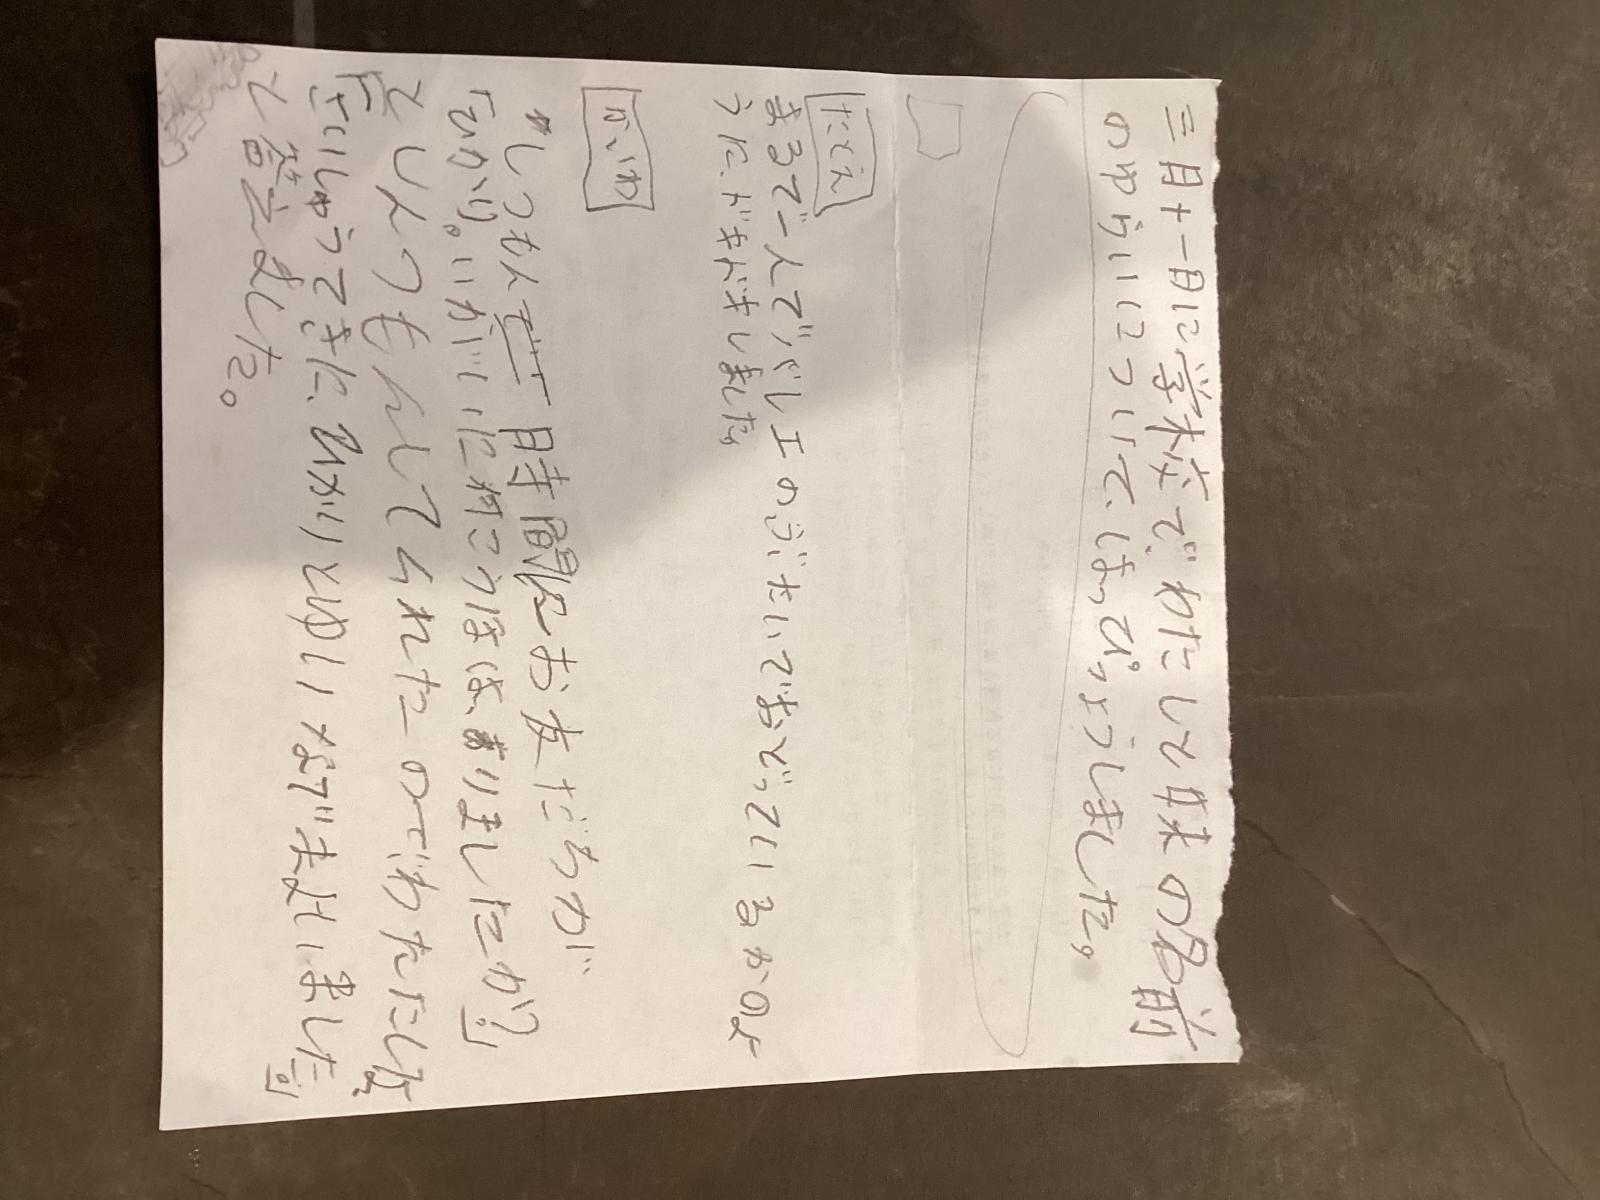 三月十一日に学校でわたしと妹の名前
のゆらいについて、はっぴょうしました。
たとえ
まるで一人でバレエのぶたいでおどっているかのよ
うに、ドキドキしました。
かいわ
しつもんぜ 一時間にお友だちが
「ひかり。いがいに何こうほは、ありましたか?」
としつもんしてくれたのでわたしは
「さいしゅうてきに、ひかりとゆいなでまよいました」
と答えました。